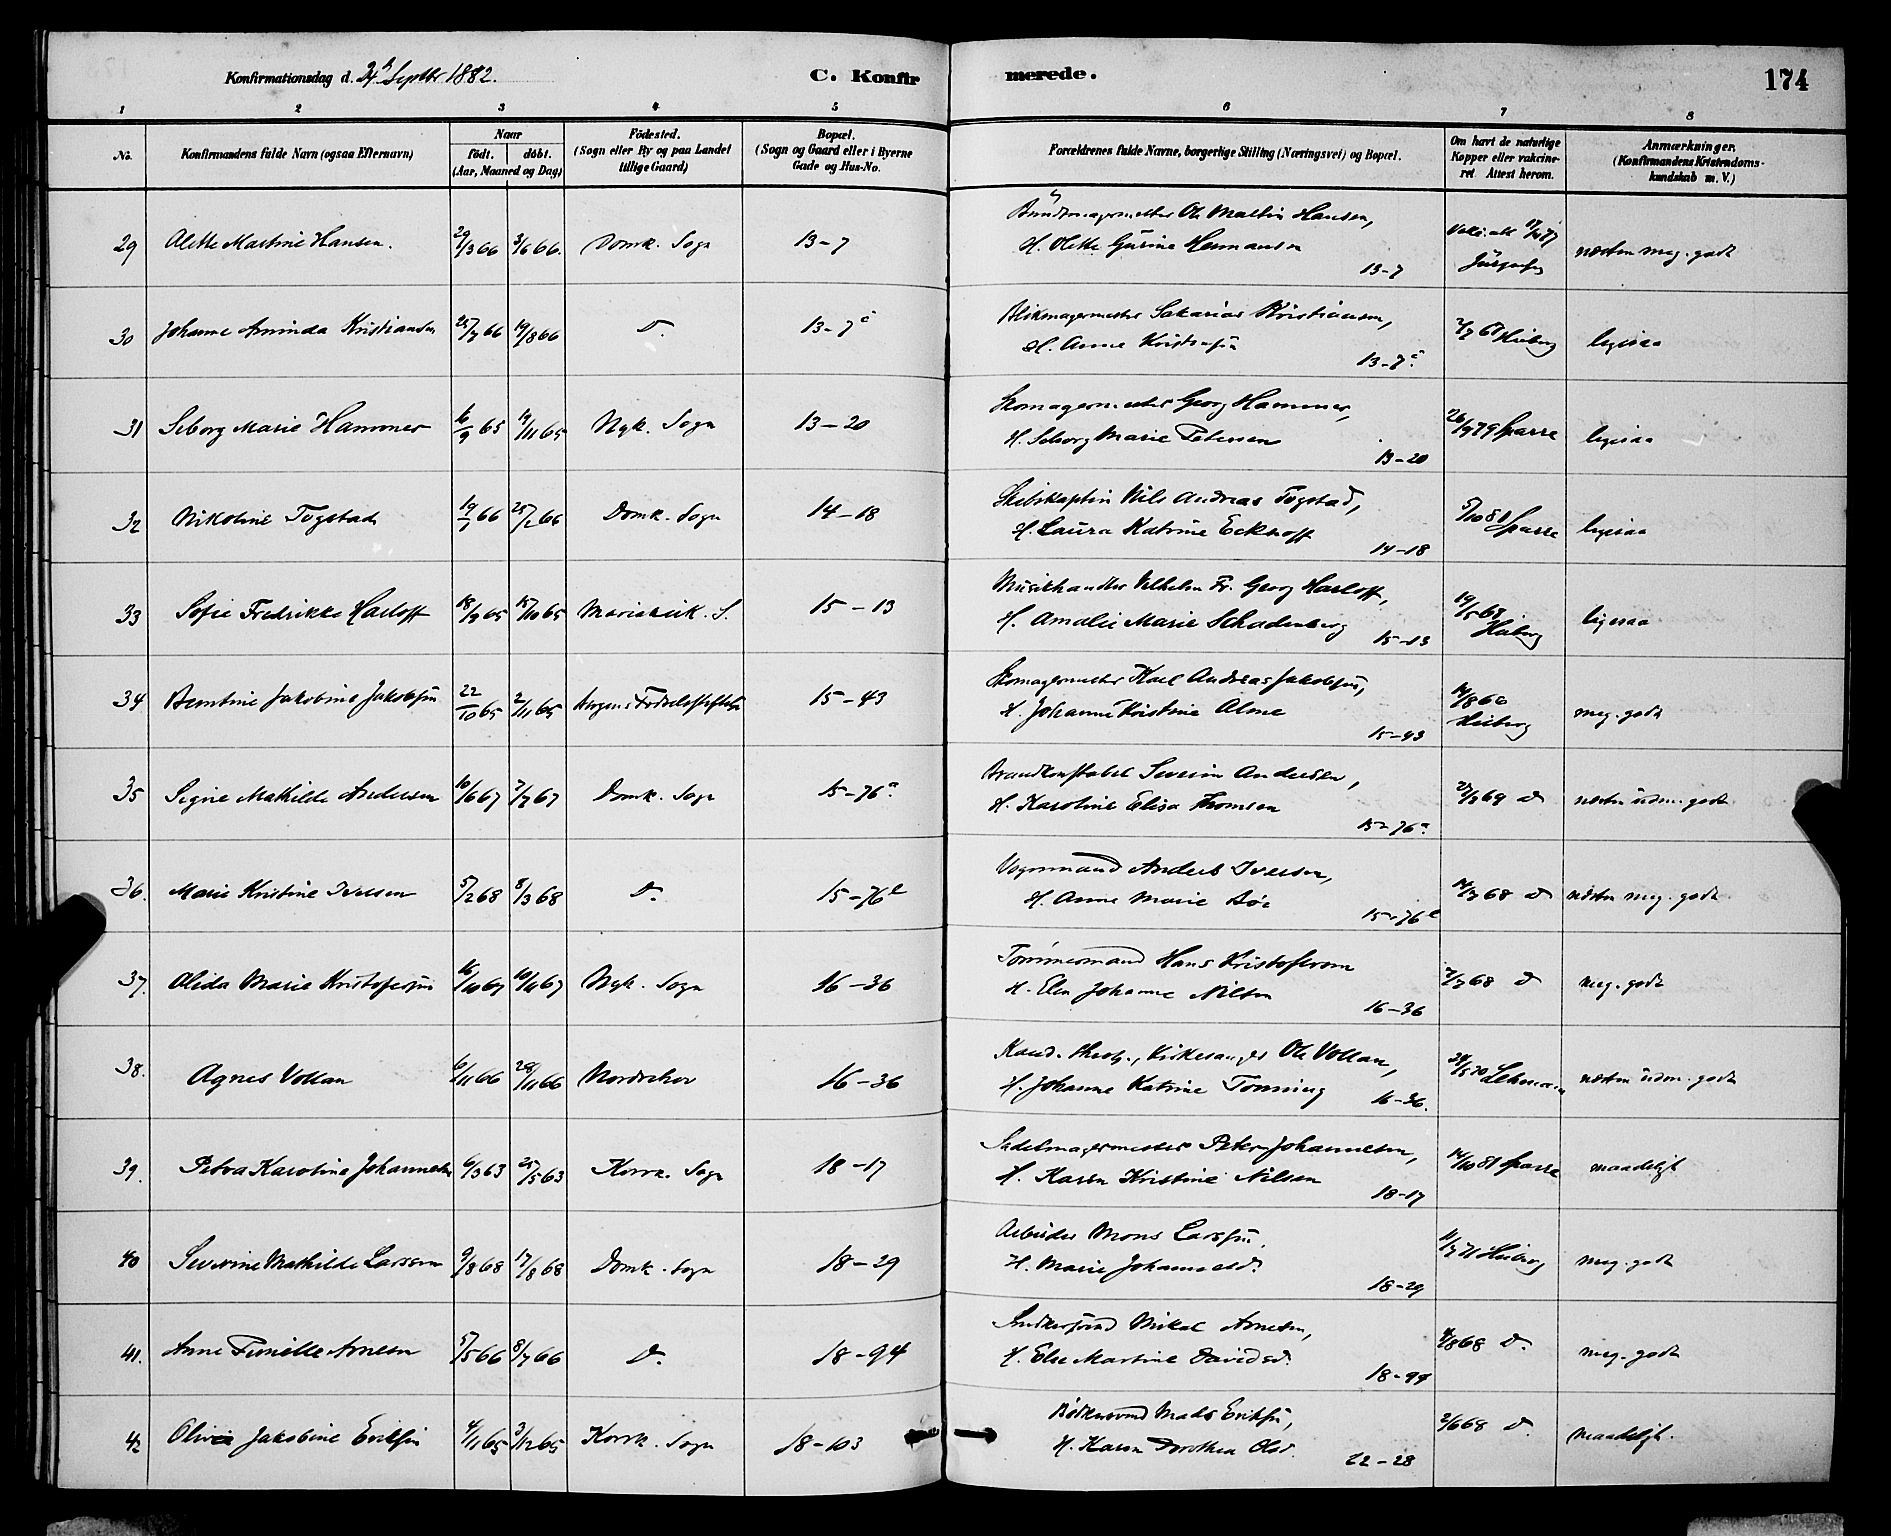 Konfirmationsdag d. 24de Septbr 1882.
C. Konfirmerede.
174
1 2 3 4 5 6 7 8
No.
Konfirmandens fulde Navn (ogsaa Efternavn)
Naar
födt. döbt.
(Aar, Maaned og Dag)
Födested.
(Sogn eller By og paa Landet
tillige Gaard)
Bopæl.
(Sogn og Gaard eller i Byerne
Gade og Hus-No.
Forældrenes fulde Navne, borgerlige Stilling (Næringsvei) og Bopæl.
Om havt de naturlige
Kopper eller vakcine-
ret Attest herom.
Anmærkninger.
(Konfirmandens Kristendoms-
kundskab m. V.)
29 Alette Martine Hansen. 29/3 66 3/6 66. Domk. Sogn 13-7
Buntmagermester Ole Martin Hansen,
H. Olette Gurine Hermansen
13-7
næsten meg. godt
30 Johanne Aminda Kristiansen 25/7 66 19/8 66 D. 13-7c
Blikmagermester Sakarias Kristiansen,
H. Anne Kristensen
13-7c
Heiberg
ligesaa
31 Seborg Marie Hammer 16/9 65 19/11 65 Nyk. Sogn 13-20
Skomagermester Georg Hammer,
H. Seborg Marie Petersen
13-20
26/9 79 Sparre
ligesaa
32 Nikoline Tygstad 19/1 66 25/2 66 Domk. Sogn 14-18
Skibskaptein Nils Andreas Tygstad,
H. Laura Katrine Eckhoff
14-18
5/10 81 Sparre
ligesaa
33 Sofie Fredrikke Harloff 18/9 65 15/10 65 Mariakirk. S. 15-13
Musikhandler Vilhelm Fr. Georg Harloff,
H. Amalie Marie Schadenberg
15-13
19/5 68
Heiberg
ligesaa
34 Berntine Jakobine Jakobsen 22/10 65 2/11 65 Bergens Fødselsstiftelse 15-43
Skomagermester Karl Andreas Jakobsen,
H. Johanne Kristine Alme
15-43
14/8 66
Heiberg
meg. godt
35 Signe Mathilde Andersen 10/6 67 7/7 67 Domk. Sogn 15-76a
Brandkonstabel Severin Andersen,
H. Karoline Elisa Thomsen
15-76a
69 D
næsten udm. godt
36. Marie Kristine Iversen 5/2 68 8/3 68 D. 15-76b
Vognmand Anders Iversen,
H. Anne Marie Bøe
15-76b
68 D
næsten meg. godt
37. Alida Marie Kristofersen 16/10 67 10/11 67 Nyk. Sogn 16-36
Tømmermand Hans Kristofersen
H. Elen Johanne Nilsen
16-36
68 D
meg. godt
38. Agnes Vollan 6/11 66 28/11 66 Nordrehov 16-36
Kand. theol., Kirkesanger Ole Vollan,
H. Johanne Katrine Tonning
16-36.
24/5 70 Lehmann
næsten udm. godt
39. Petra Karolina Johannesen 6/3 63 25/5 63 Korsk. Sogn 18-17
Sadelmagermester Peter Johannesen,
H. Karen Kristine Nilsen
18-17
14/10 81 Sparre
maadeligt
40 Severine Mathilde Larsen 9/8 68 17/8 68 Domk. Sogn 18-29
Arbeider Mons Larsen
H. Marie Johannesd.
18-29
11/7 71 Heiberg
meg. godt
41. Anne Pernille Arnesen 5/5 66 8/7 66 D. 18-94
Snedkersvend Mikal Arnesen,
H. Else Martine Davidsd.
18-94
68 D.
meg. godt
42 Olivia Jakobine Eriksen 4/11 65 3/12 65 Korsk. Sogn 18-103
Bødkersvend Mads Eriksen,
H. Karen Dorothea Olsd.
22-28
2/6 68 D.
maadeligt.